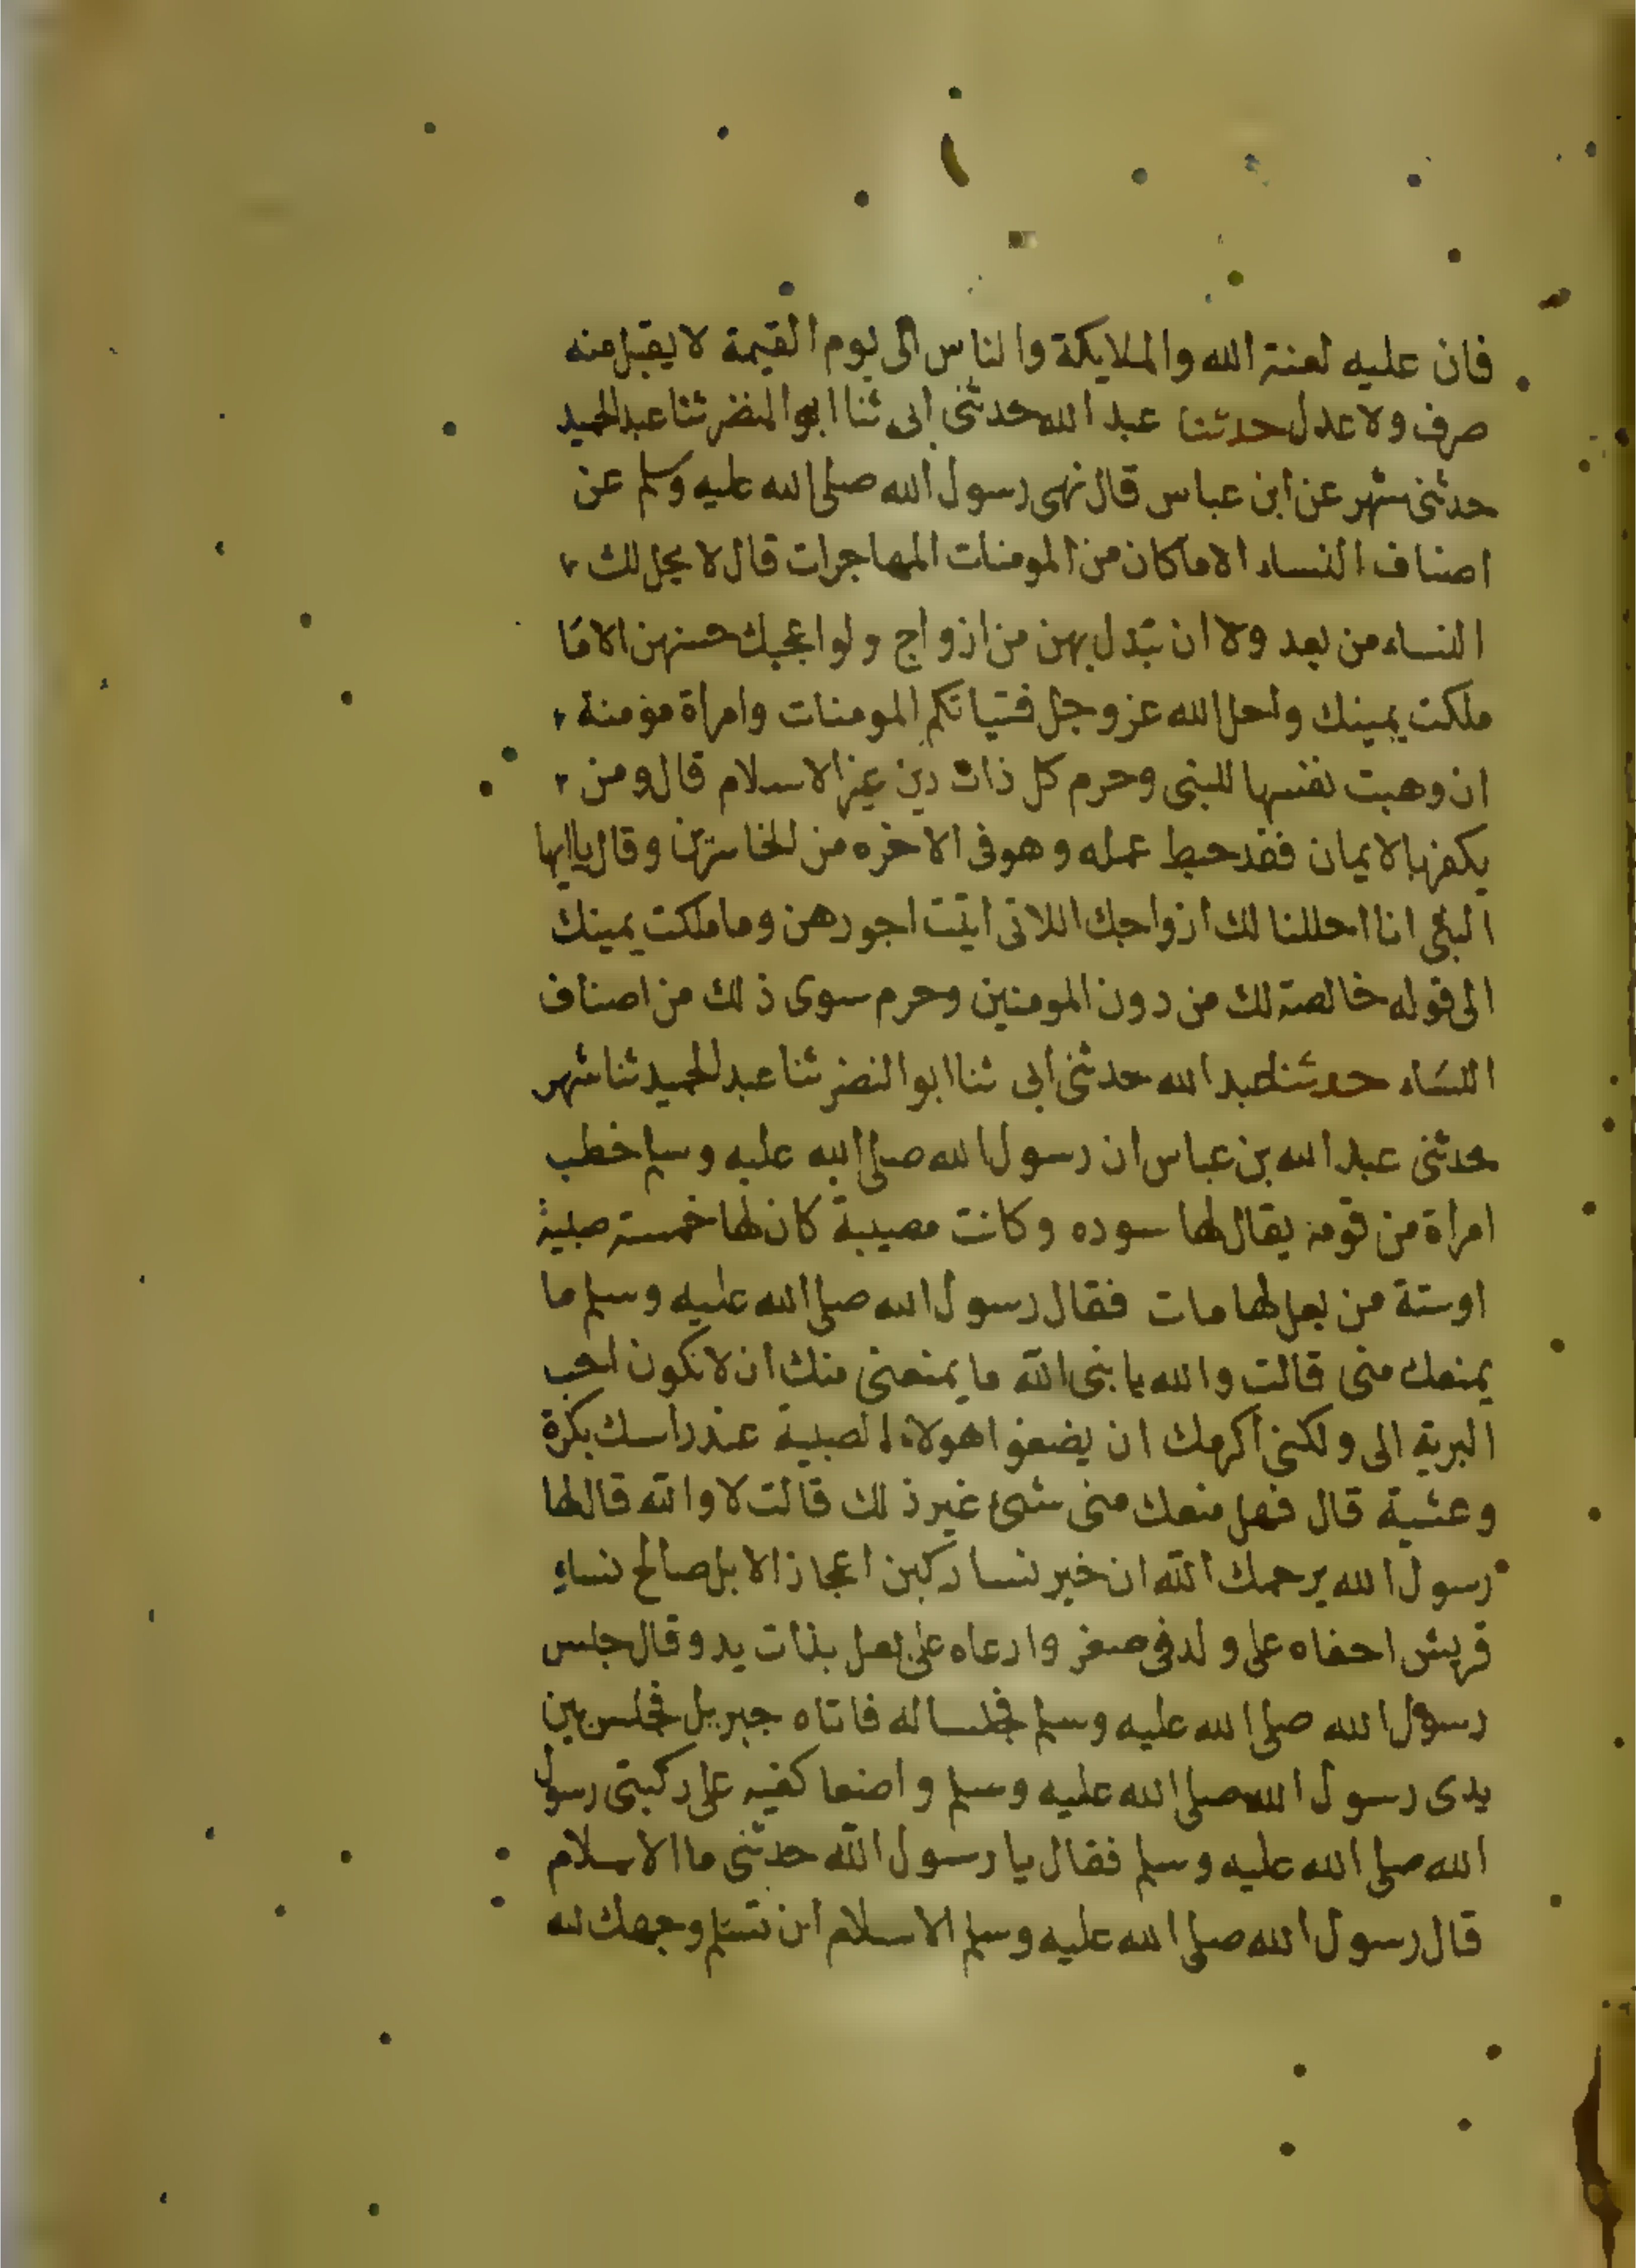 فان عليه لعنة الله والملايكة والناس الى يوم القيمة لا يقبل منه
صرف ولا عدل حدثنا عبد الله حدثني ابي ثنا ابو النضر ثنا عبد الحميد
حدثني شهر عن ابن عباس قال نهى رسول الله صلى الله عليه وسلم عن
اصناف النساء الا ما كان من المومنات المهاجرات قال لا يحل لك
النساء من بعد ولا ان تبدل بهن من ازواج ولو اعجبك حسنهن الا ما
ملكت يمينك واحل الله عز وجل فتياتكم المومنات وامراة مؤمنة
ان وهبت نفسها للنبي وحرم كل ذات دين غير الاسلام قال ومن
يكفر بالايمان فقد حبط عمله وهو في الاخره من الخاسرين وقال يا ايها
النبي انا احللنا لك ازواجك اللاتي اتيت اجورهن وما ملكت يمينك
الى قوله خالصة لك من دون المومنين وحرم سوى ذلك من اصناف
النساء حدثنا عبد الله حدثني ابي ثنا ابو النضر ثنا عبد الحميد ثنا شهر
حدثني عبد الله بن عباس ان رسول الله صلى الله عليه وسلم خطب
امراة من قومه يقال لها سوده وكانت مصيبة كان لها خمسة صبية
اوستة من بعل لها مات فقال رسول الله صلى الله عليه وسلم ما
يمنعك مني قالت والله يا نبي الله ما يمنعني منك ان لا تكون احب
البرية الى ولكني اكرمك ان يضغوا هولاء الصبية عند راسك بكرة
وعشية قال فهل منعك مني شيئ غير ذلك قالت لا والله قال لها
رسول الله يرحمك الله ان خير نسا ركبن اعجاز الابل صالح نساء
قريش احناه على ولد في صغر وارعاه على بعل بذات يد وقال جلس
رسول الله صلى الله عليه وسلم مجلسا له فاتاه جبريل فجلس بين
يدى رسول الله صلى الله عليه وسلم واضعا كفيه على ركبتي رسول
الله صلى الله عليه وسلم فقال يا رسول الله حدثني ما الاسلام
قال رسول الله صلى الله عليه وسلم الاسلام ان تسلم وجهك لله